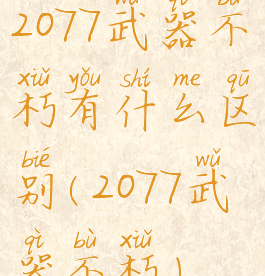 wǔ qì bù
2077武器不
xiǔ yǒu shí me qū
朽有什么区
bié wǔ
别(2077武
qì bù xiǔ
器不朽)